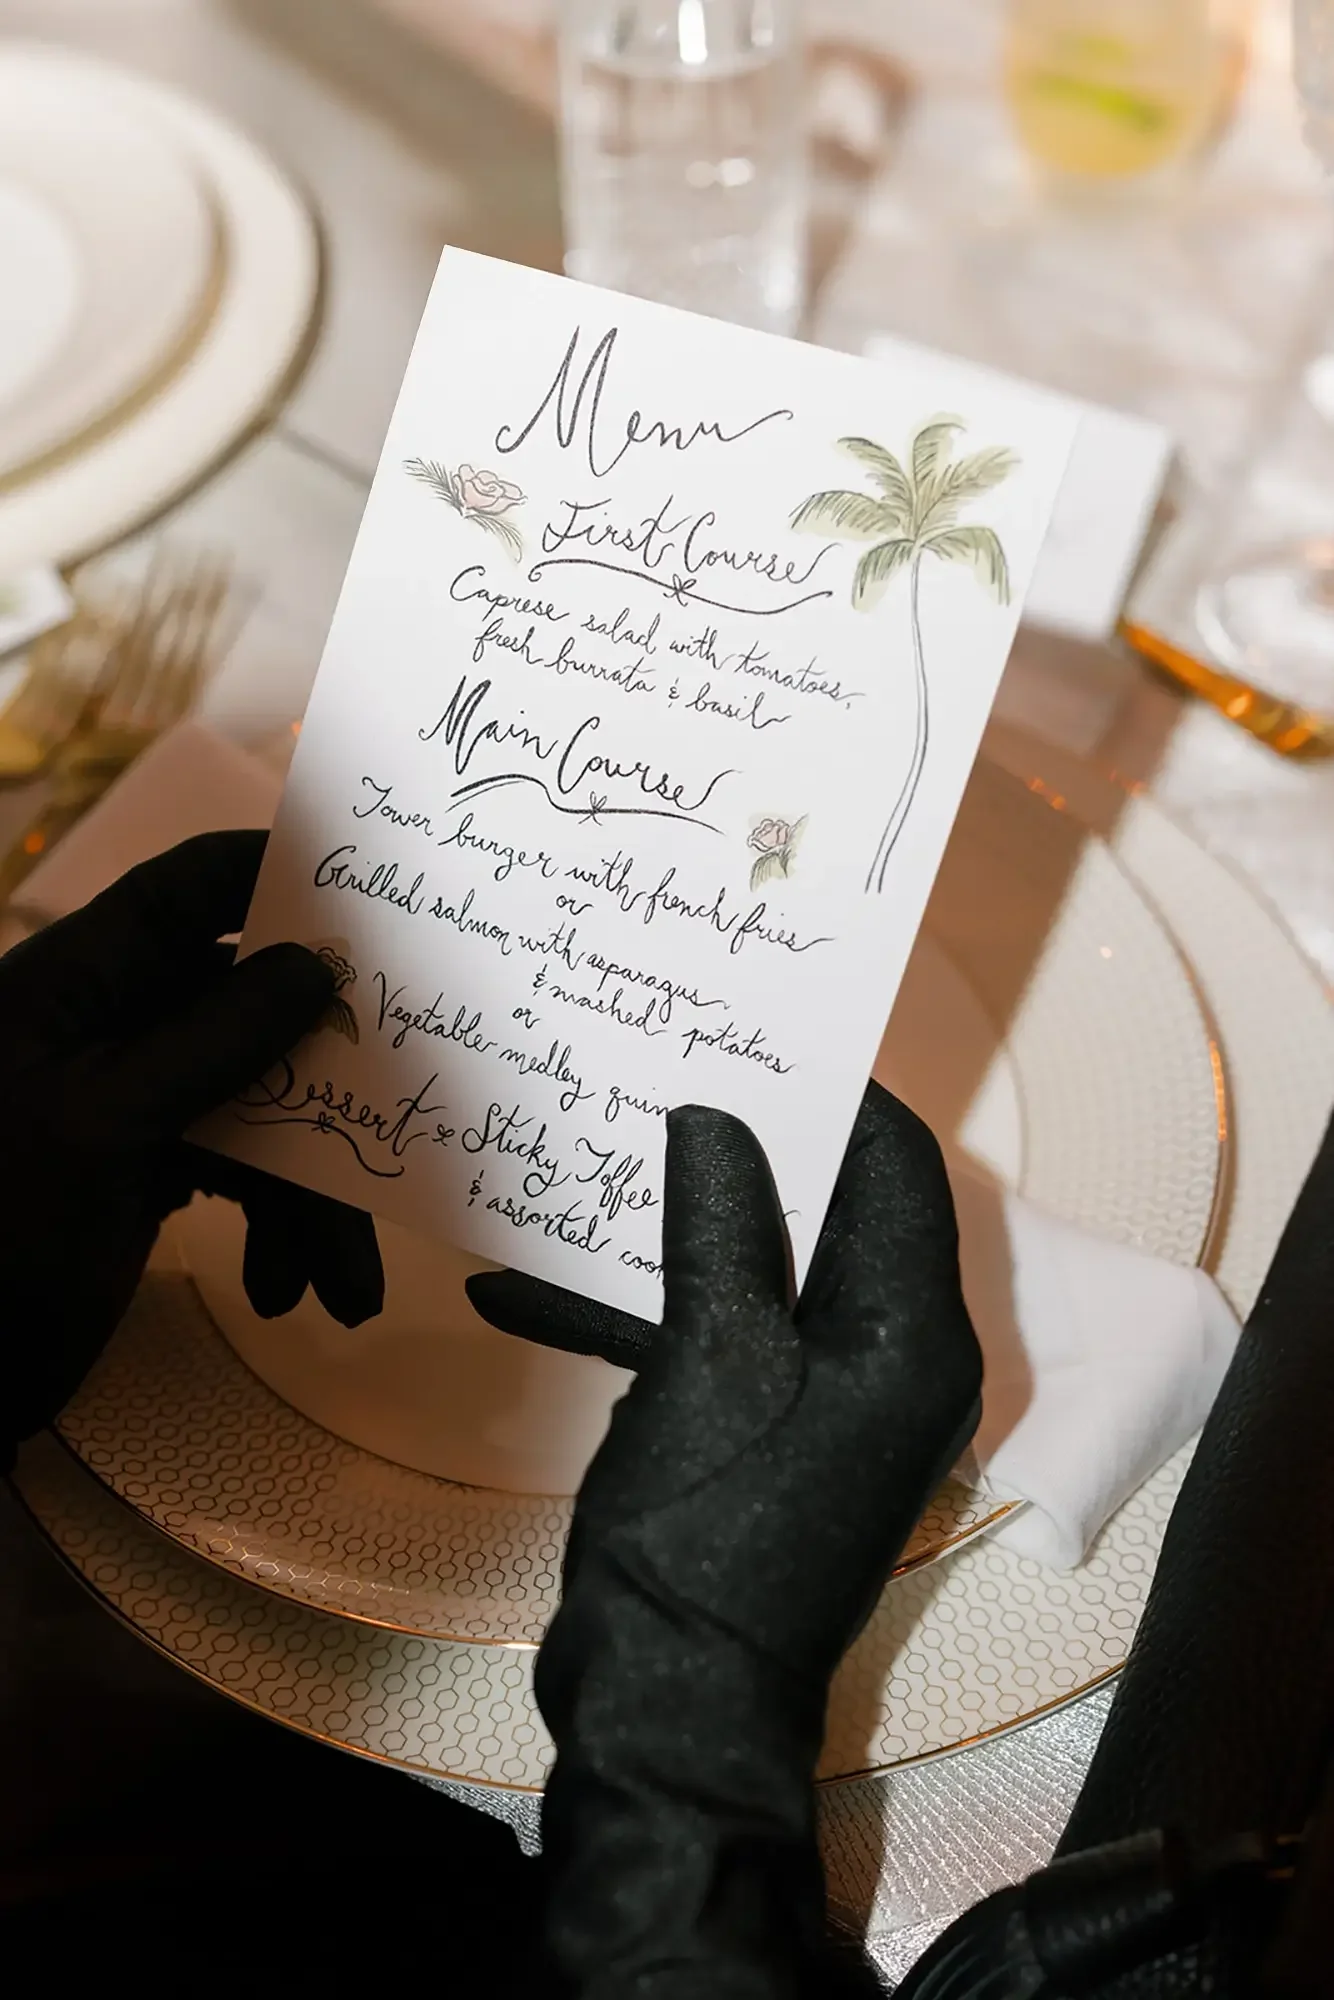 Menu
First Course
Caprese salad with tomatoes,
fresh burrata & basil
Main Course
Tower burger with french fries
or
Grilled salmon with asparagus
& mashed potatoes
or
Vegetable medley quin
Dessert Sticky Toffee
& assorted coo